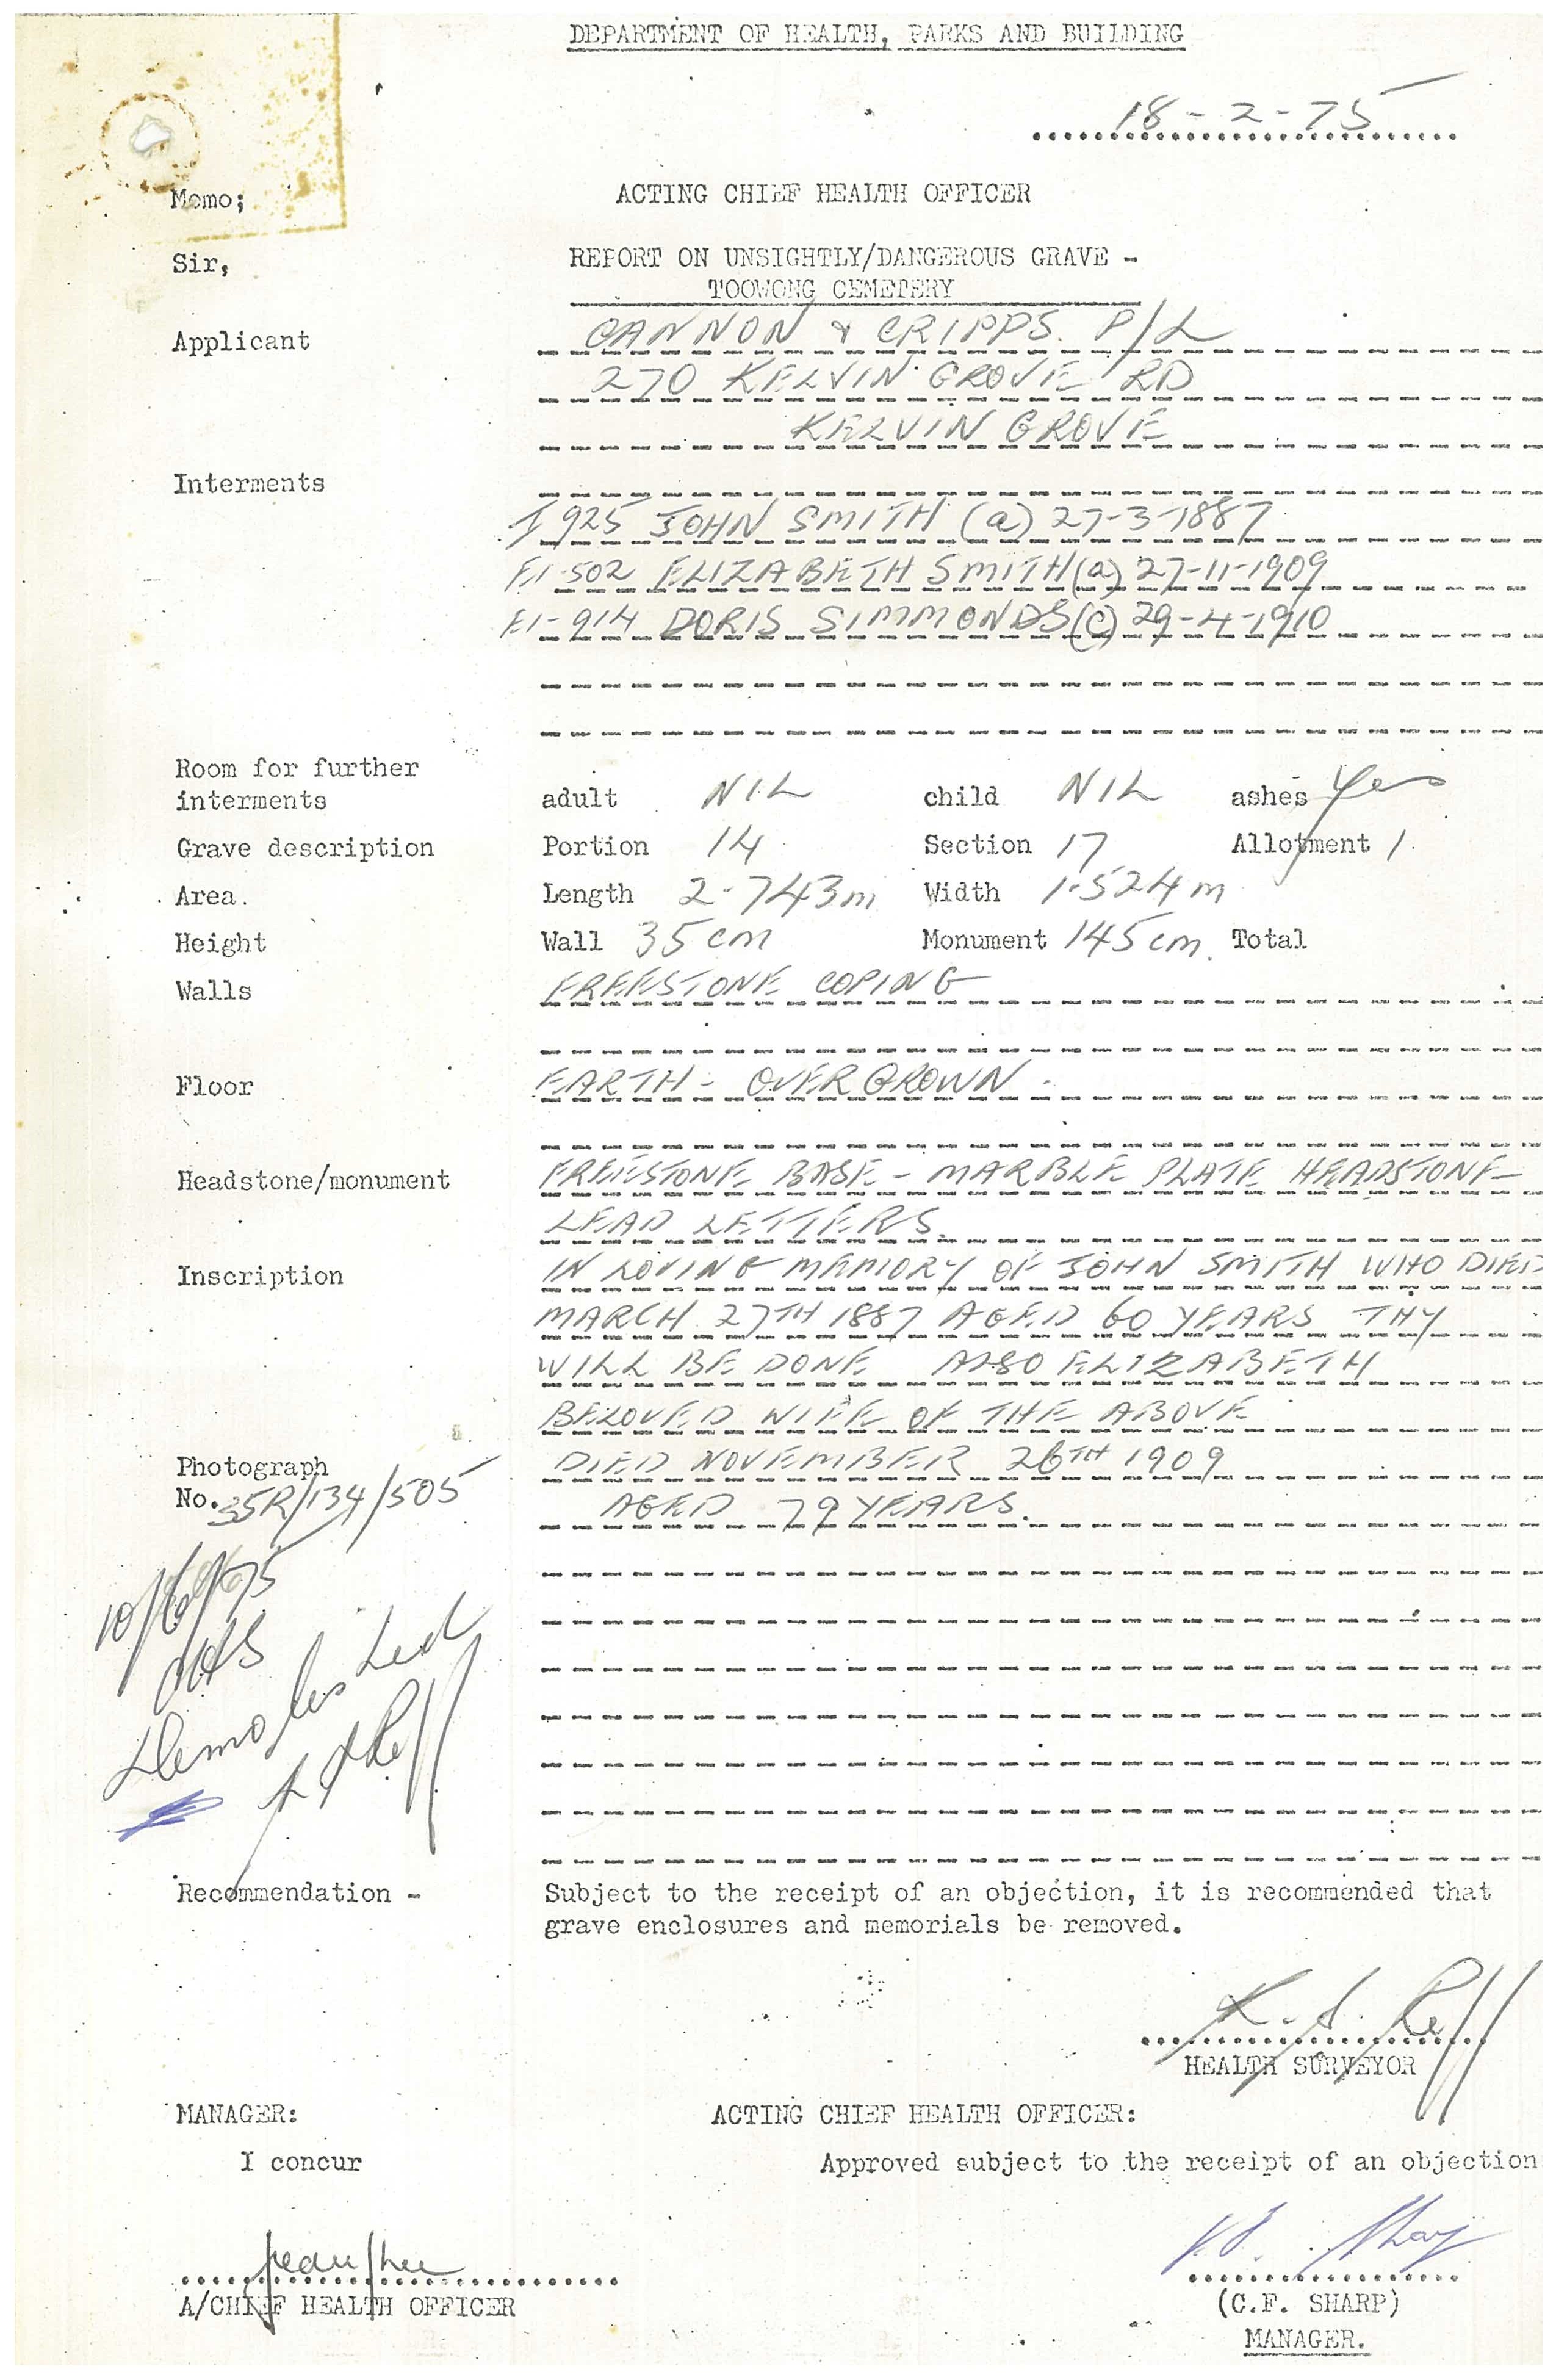 DEPARTMENT OF HEALTH, PARKS AND BUILDING
18-2-75
Memo;
ACTING CHIEF HEALTH OFFICER
Sir,
REPORT ON UNSIGHTLY/DANGEROUS GRAVE -
TOOWONG CEMETERY
Applicant CANNON & CRIPPS. P/L
270 KELVIN GROVE RD
KELVIN GROVE
Interments
925 JOHN SMITH (a) 27-3-1887
E1-502 ELIZABETH SMITH (a) 27-11-1909
E1-914 DORIS SIMMONDS (c) 29-4-1910
Room for further
interments adult NIL child NIL ashes yes
Grave description Portion 14 Section 17 Allotment 1
Area. Length 2.743m Width 1.524m
Height Wall 35cm Monument 145cm. Total
Walls FREESTONE COPING
Floor EARTH - OVERGROWN
Headstone/monument FREESTONE BASE - MARBLE PLATE HEADSTONE
LEAD LETTERS.
Inscription IN LOVING MEMORY OF JOHN SMITH WHO DIED
MARCH 27TH 1887 AGED 60 YEARS THY
WILL BE DONE ALSO ELIZABETH
BELOVED WIFE OF THE ABOVE
Photograph DIED NOVEMBER 26TH 1909
No. 35R/134/505 AGED 79 YEARS.
10/6/75
Demolished
Recommendation - Subject to the receipt of an objection, it is recommended that
grave enclosures and memorials be removed.
HEALTH SURVEYOR
MANAGER: ACTING CHIEF HEALTH OFFICER:
I concur Approved subject to the receipt of an objection
A/CHIEF HEALTH OFFICER (C.F. SHARP)
MANAGER.